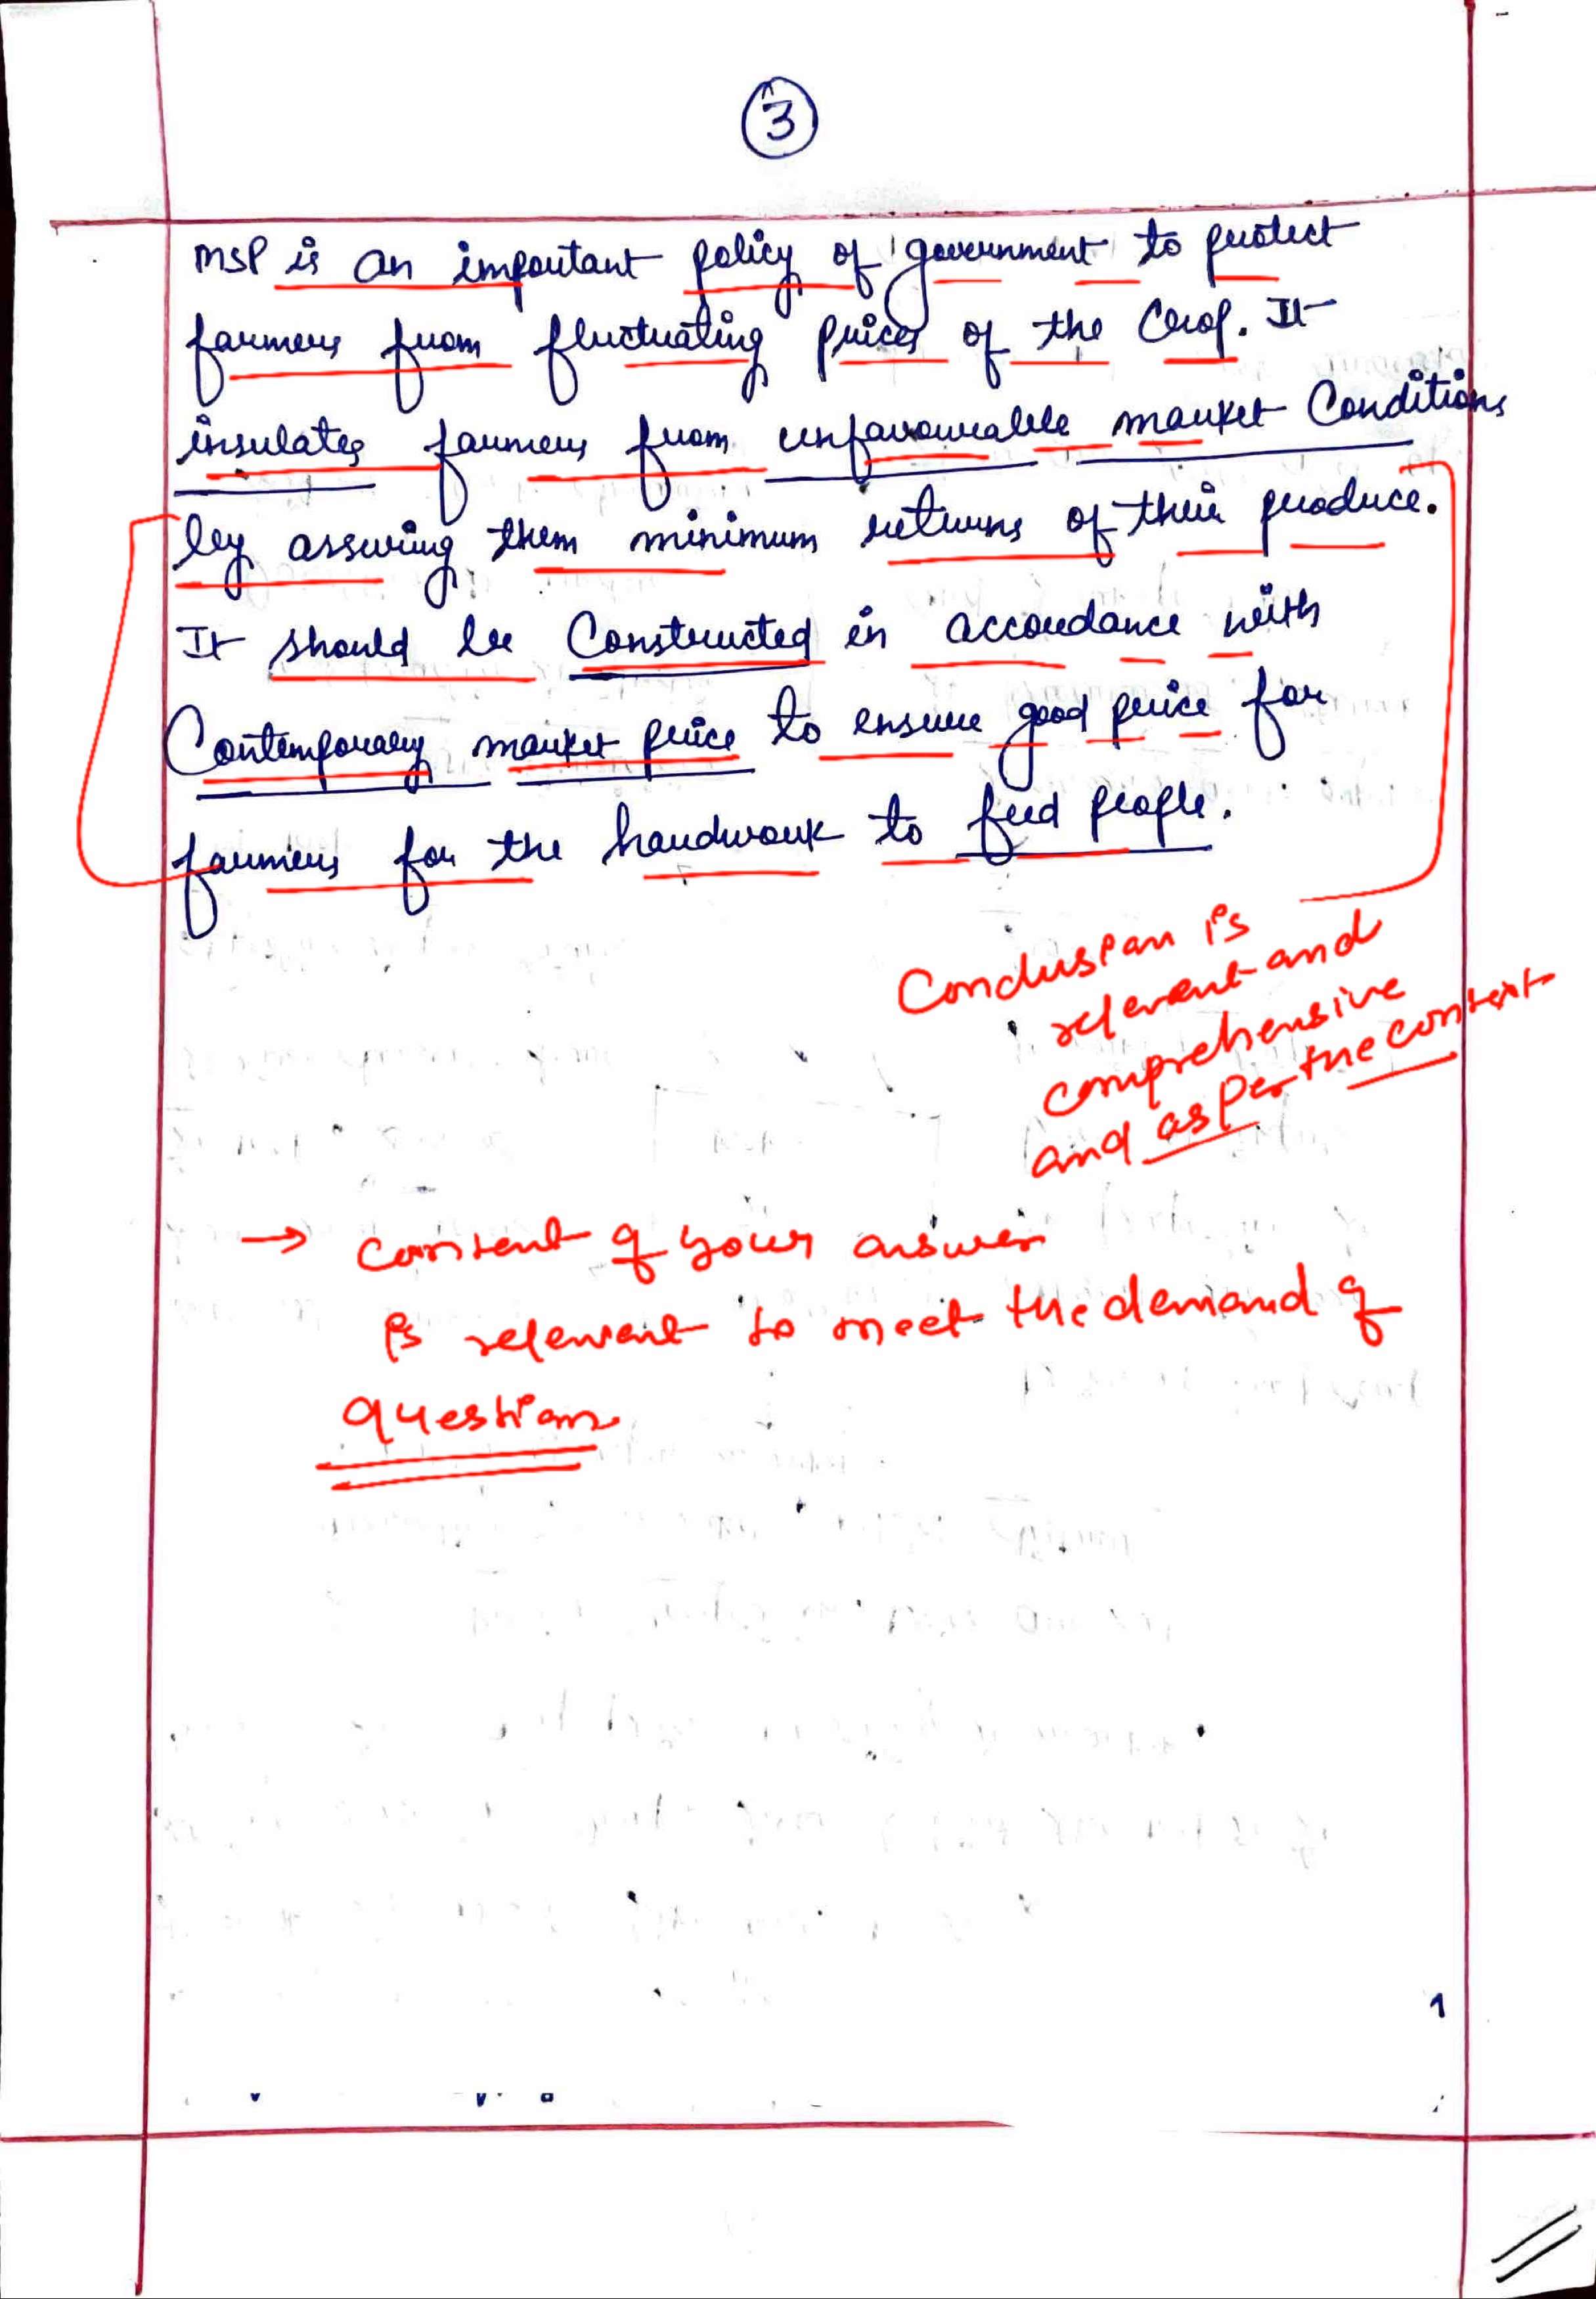 3
MSP is an important policy of government to protect
farmers from fluctuating prices of the Crop. It
insulates farmers from unfavourable market Conditions
by assuring them minimum returns of their produce.
It should be Constructed in accordance with
Contemporary market price to ensure good price for
farmers for the hardwork to feed people.
Conclusion is
relevant and
comprehensive
and as per the context
→ content of your answer
is relevant to meet the demand of
question
1